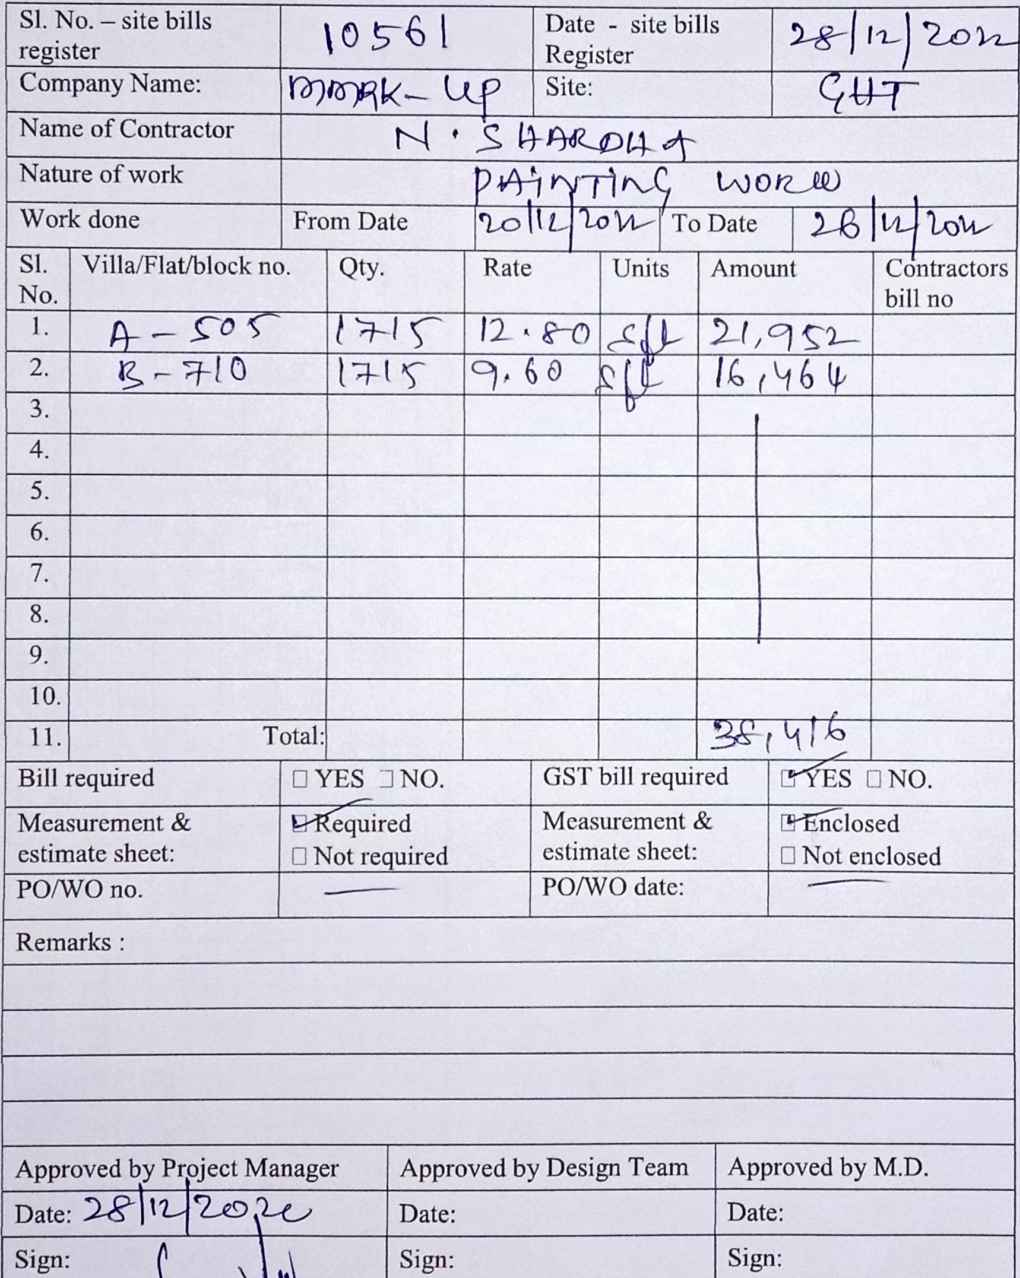 Sl. No. – site bills register 10561 Date - site bills Register 28/12/2022
Company Name: MMRK-UP Site: GHT
Name of Contractor N. SHARDHA
Nature of work PAINTING WORK
Work done From Date 20/12/2022 To Date 26/12/2022
Sl. No. Villa/Flat/block no. Qty. Rate Units Amount Contractors bill no
1. A - 505 1715 12.80 sft 21,952
2. B - 710 1715 9.60 sft 16,464
3.
4.
5.
6.
7.
8.
9.
10.
11. Total: 38,416
Bill required ☐ YES ☐ NO. GST bill required ☑ YES ☐ NO.
Measurement & estimate sheet: ☑ Required ☐ Not required Measurement & estimate sheet: ☑ Enclosed ☐ Not enclosed
PO/WO no. — PO/WO date: —
Remarks :
Approved by Project Manager Approved by Design Team Approved by M.D.
Date: 28/12/2022 Date: Date:
Sign: Sign: Sign: